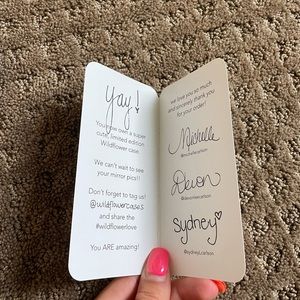 yay!
You now own a super
cute, limited edition
Wildflower case.
We can't wait to see
your mirror pics!!
Don't forget to tag us!
@wildflowercases
and share the
#wildflowerlove
You ARE amazing!
we love you so much
and sincerely thank you
for your order!
Michelle
@michellecarlson
Devon
@devonleecarlson
Sydney
@sydneylcarlson